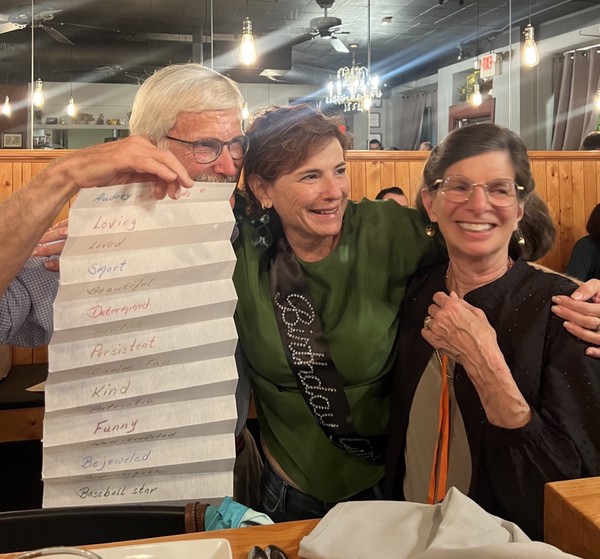 Audrey
Loving
Loved
Smart
Beautiful
Determined
Persistent
Kind
Patriotic
Funny
Bejeweled
Baseball star
Birthday
EXIT